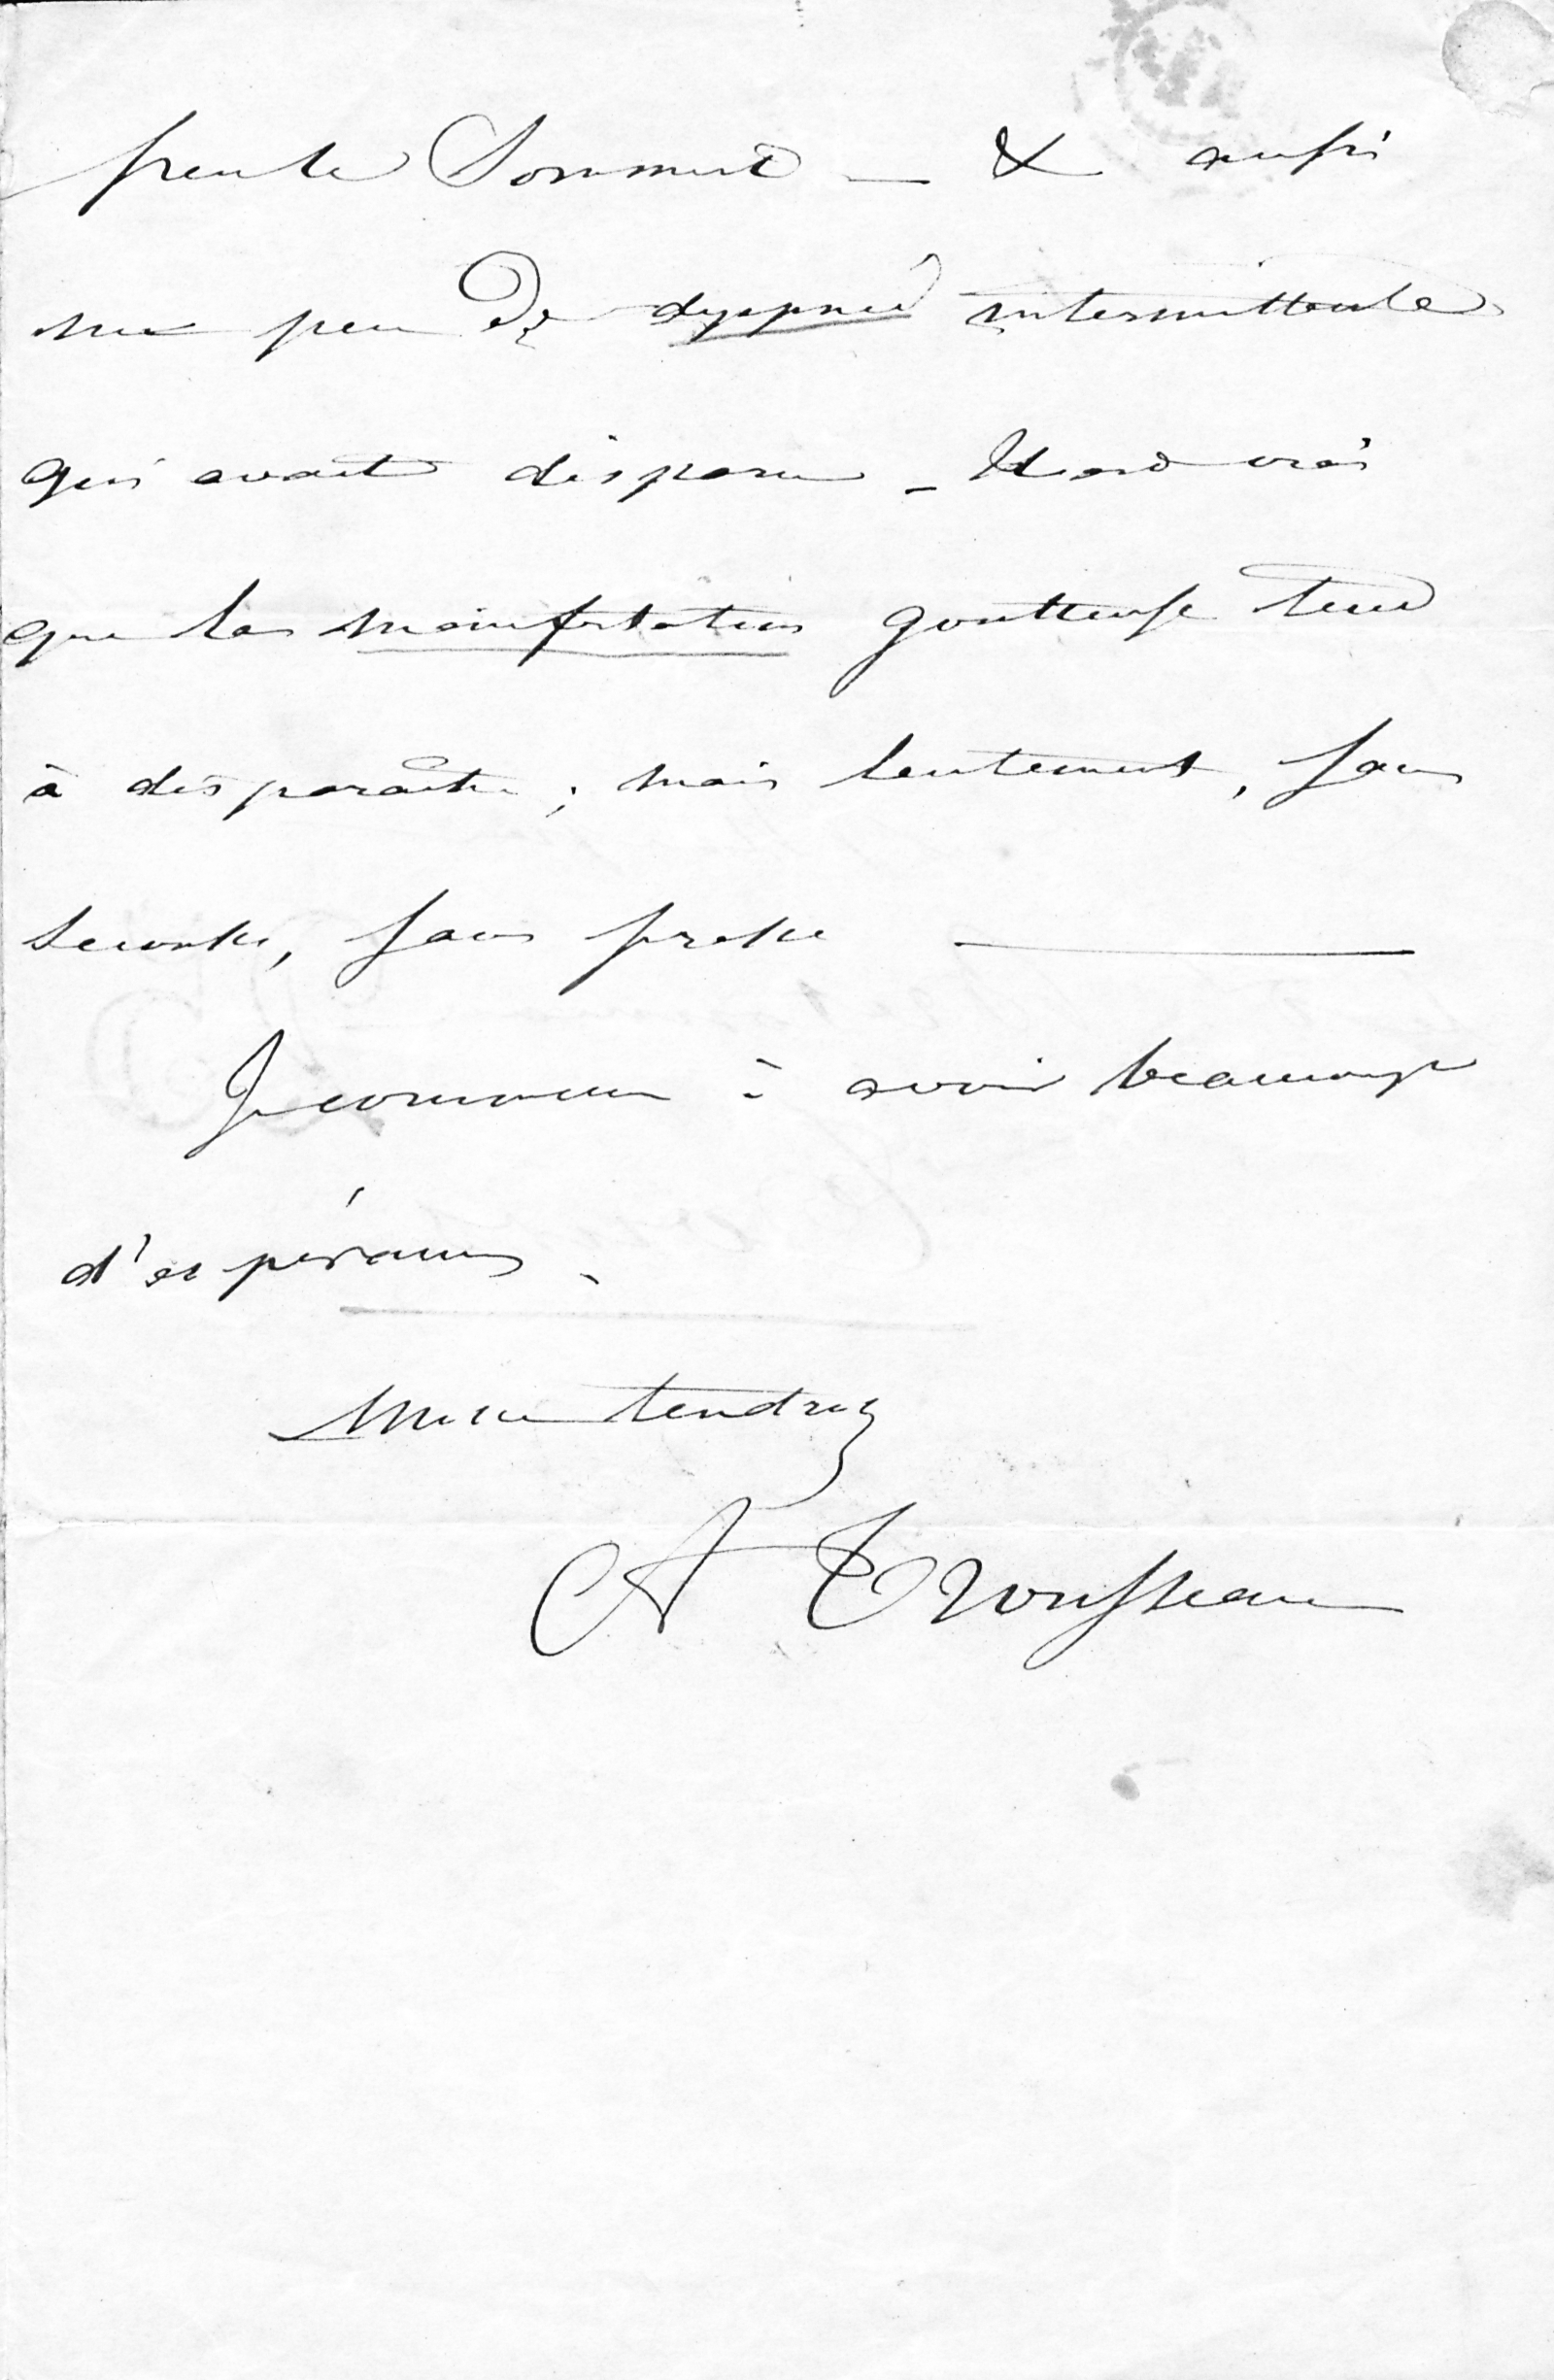 peu de Sommeil — & aussi
un peu de dyspnée intermittente
qui avait disparu – Il est vrai
que la manifestation goutteuse tend
à disparaître ; mais lentement, sans
secousse, sans
Je commence à avoir beaucoup
d'espérances.
tendrez
A Trousseau